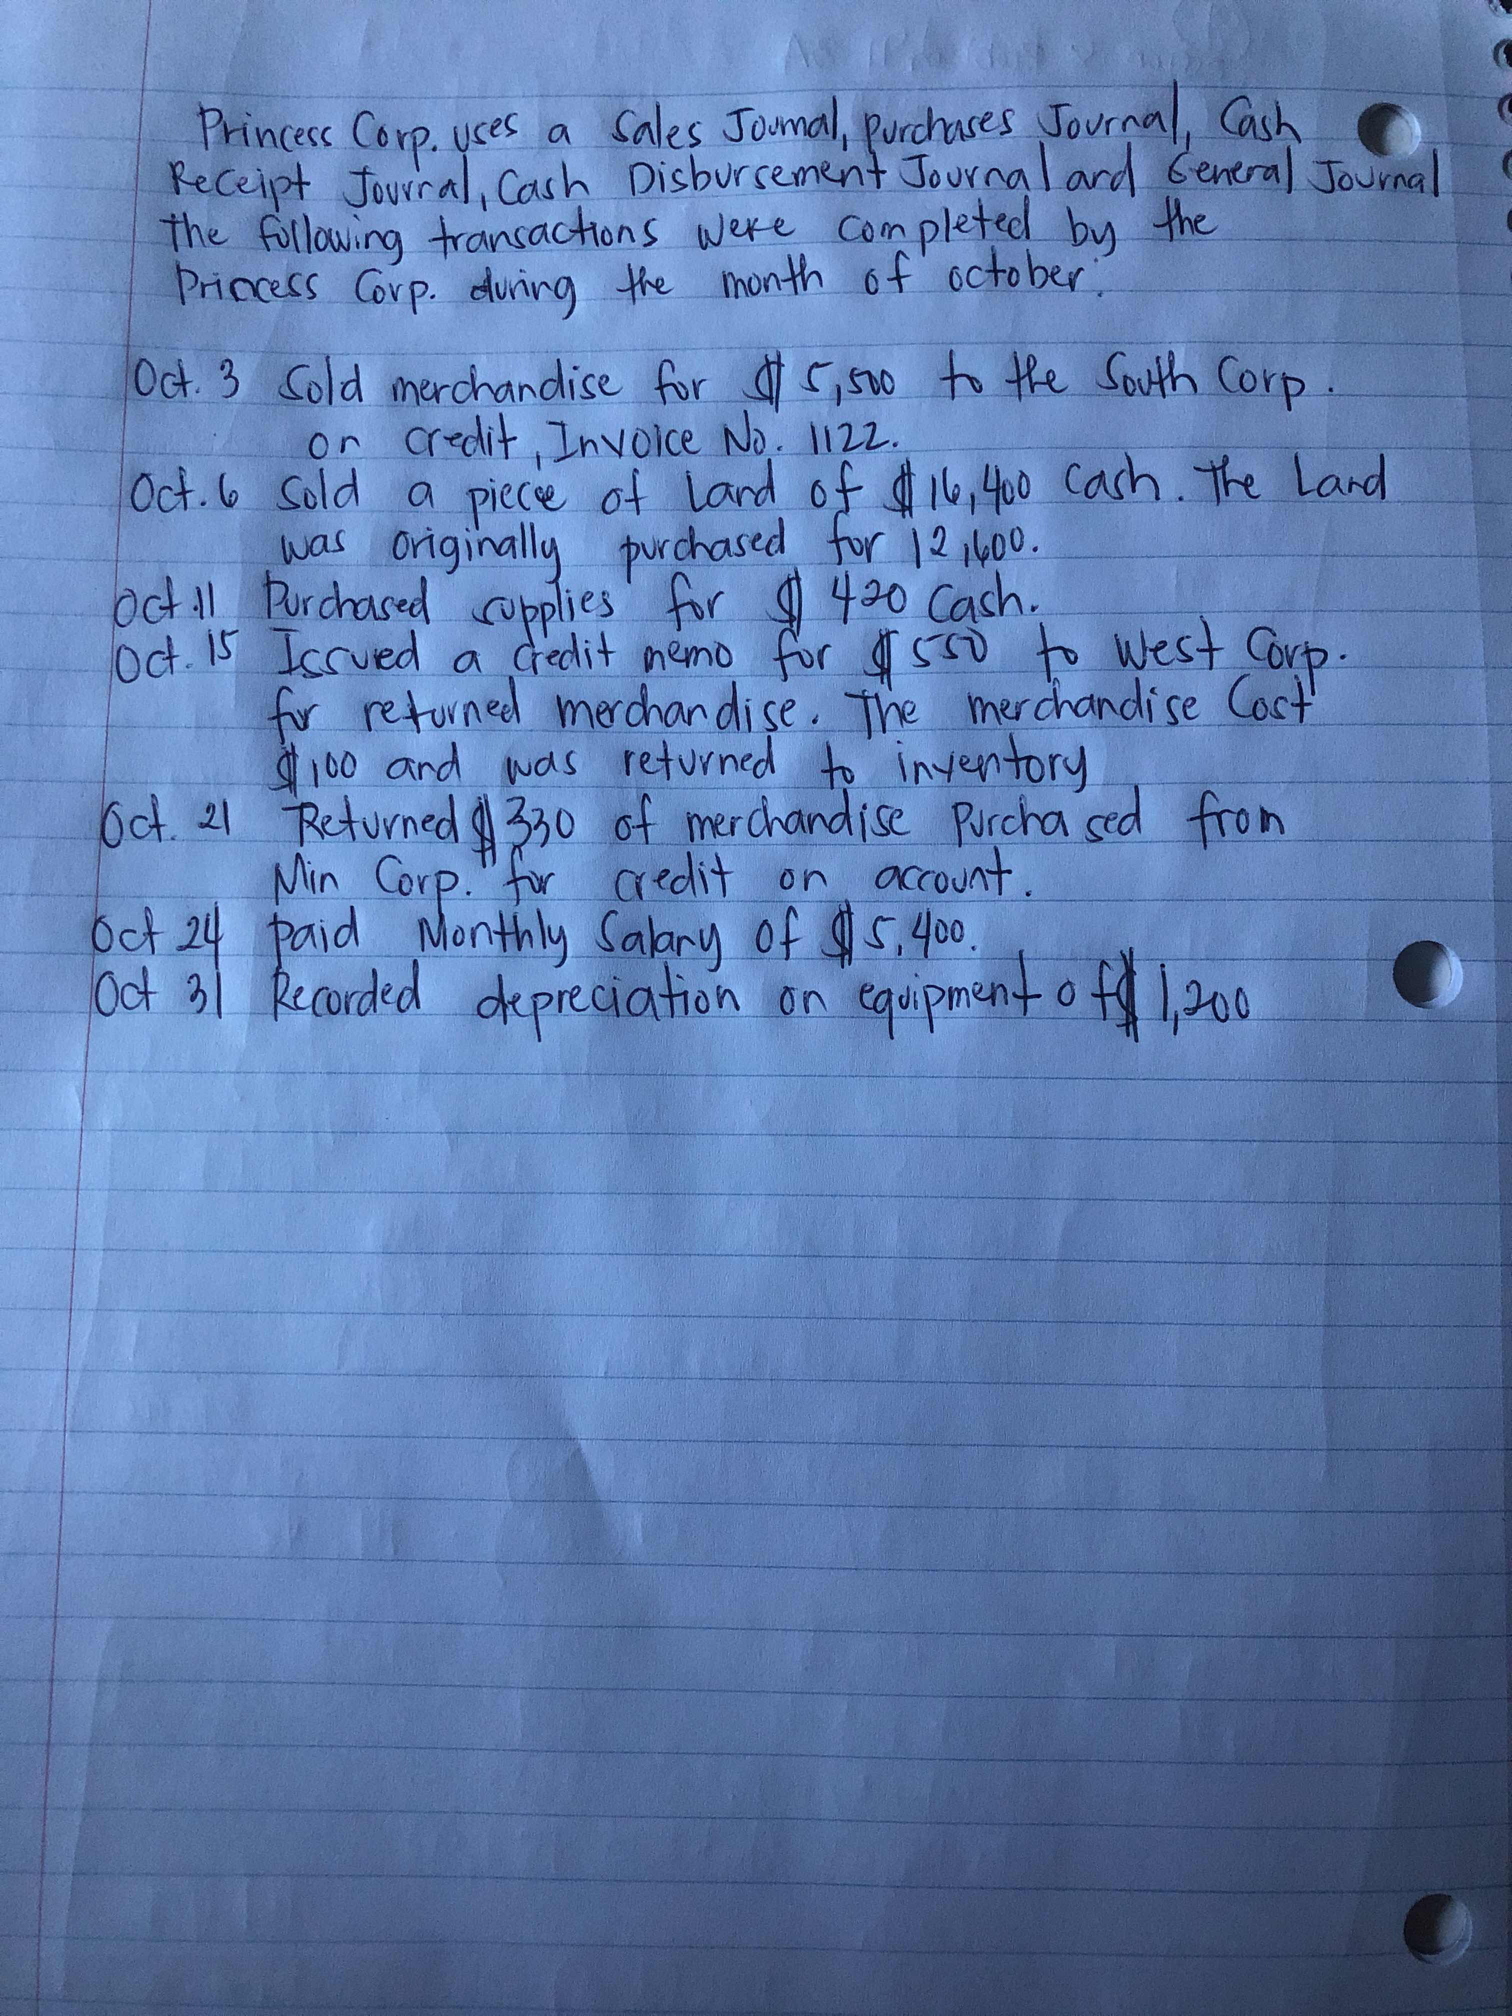 Princess Corp. uses a Sales Journal, purchases Journal, Cash
Receipt Journal, Cash Disbursement Journal and General Journal
the following transactions were completed by the
Princess Corp. during the month of october:
Oct. 3 Sold merchandise for $5,500 to the South Corp.
on credit, Invoice No. 1122.
Oct. 6 Sold a piece of Land of $16,400 cash. The Land
was originally purchased for 12,600.
Oct. 11 Purchased supplies for $420 Cash.
Oct. 15 Issued a credit memo for $550 to West Corp.
for returned merchandise. The merchandise Cost
$100 and was returned to inventory
Oct. 21 Returned $330 of merchandise Purchased from
Min Corp. for credit on account.
Oct 24 paid Monthly Salary of $5,400.
Oct 31 Recorded depreciation on equipment of $1,200